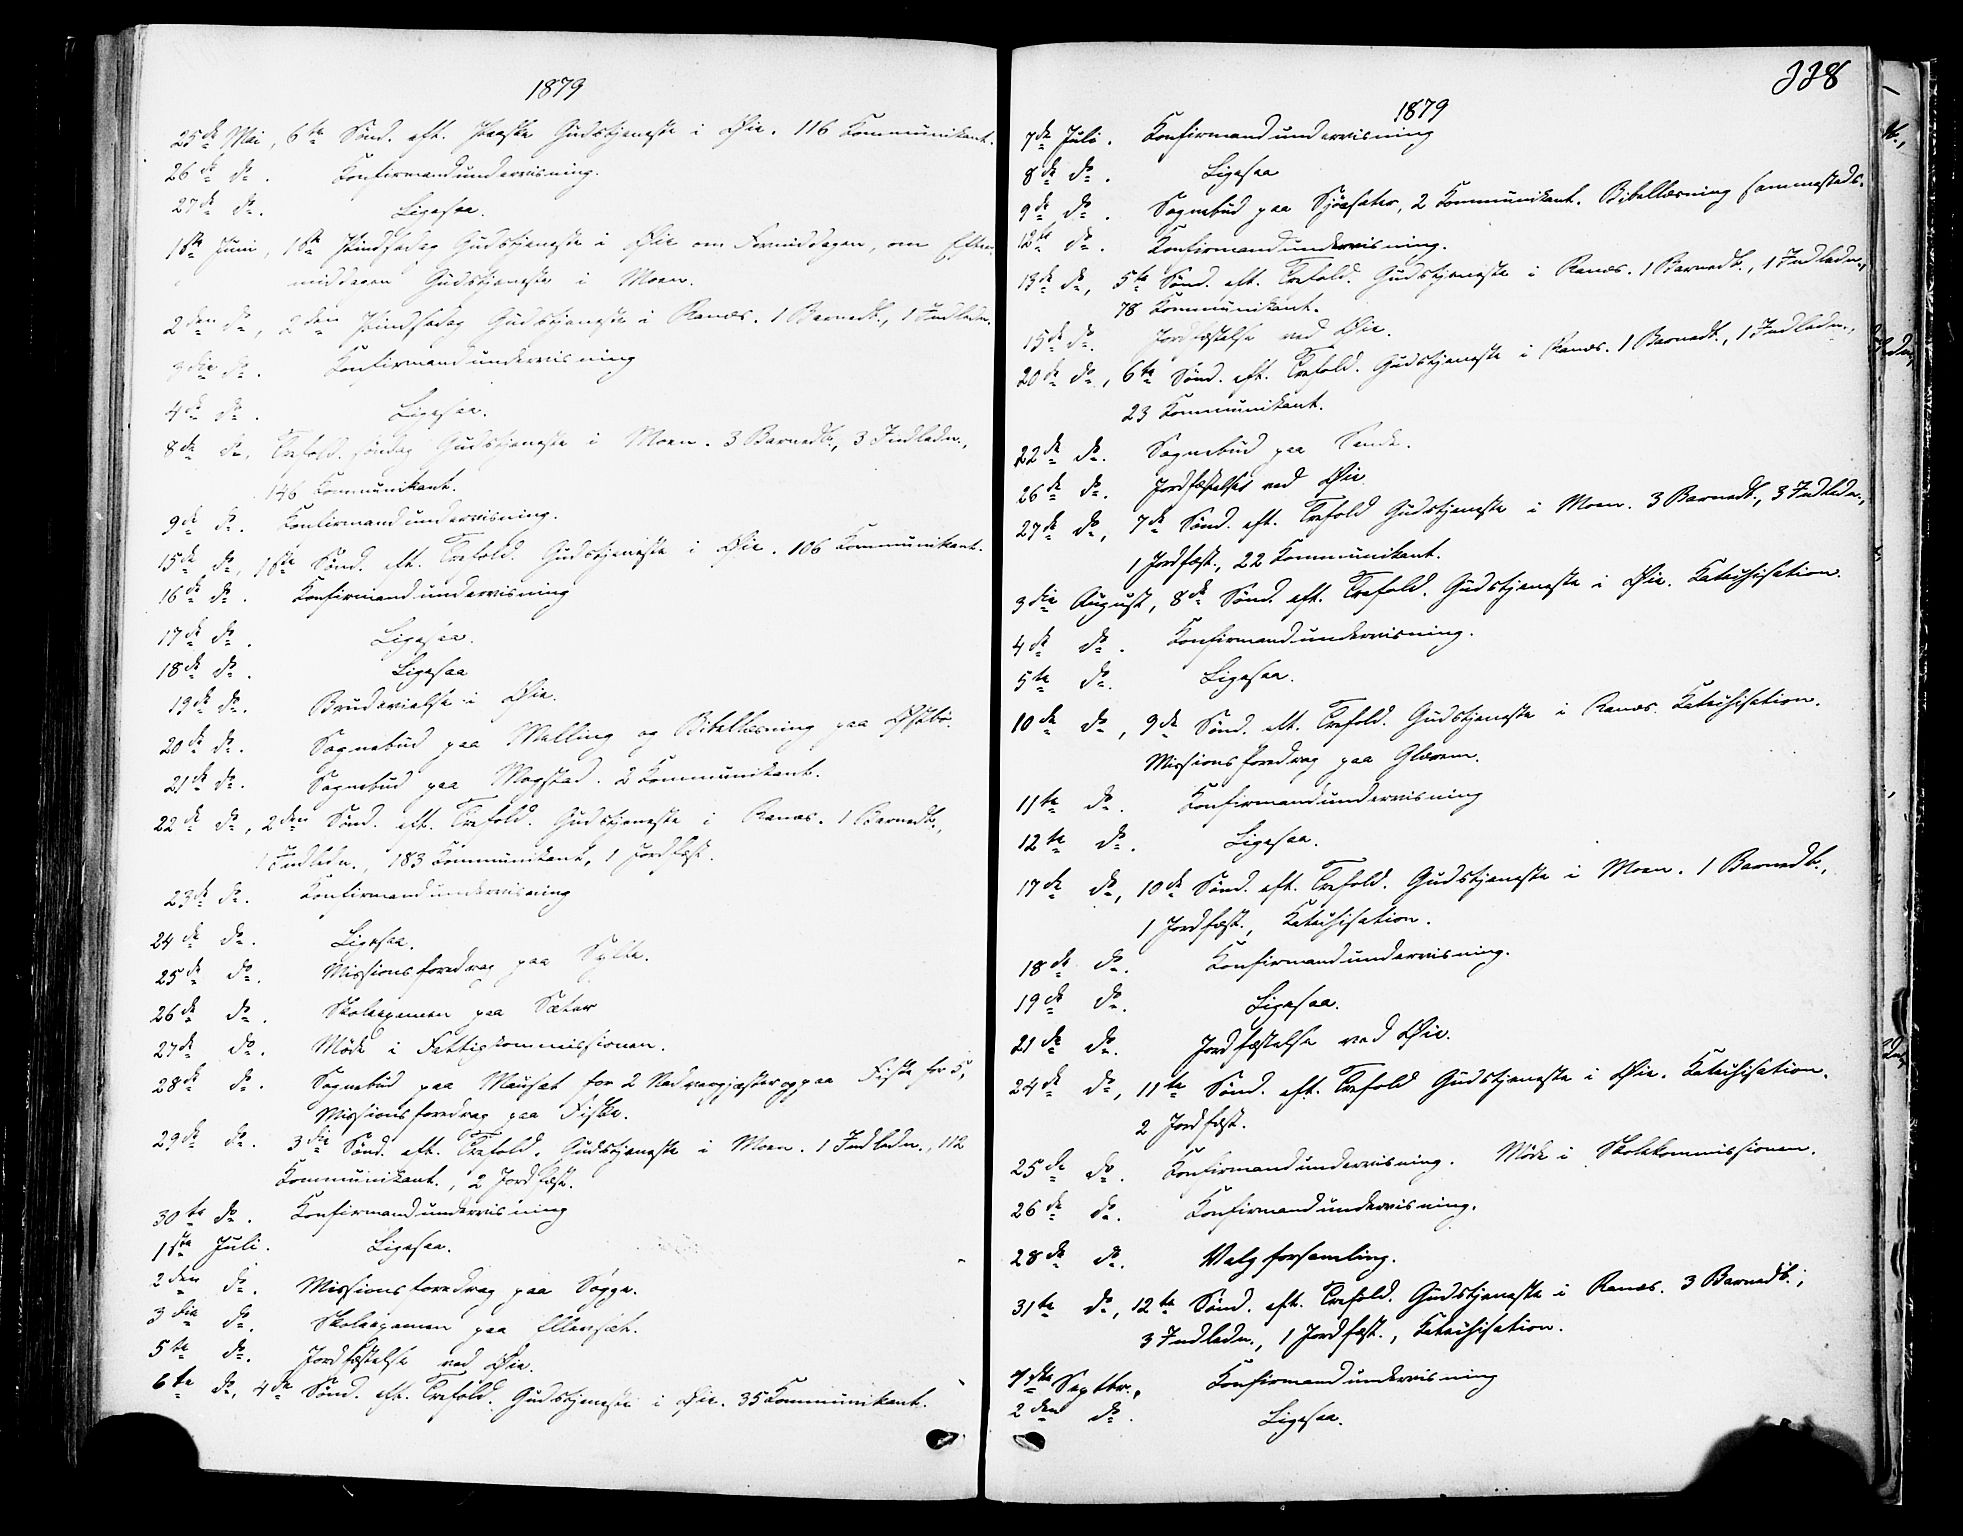 1879
25de Mai, 6te Sønd. eft. Paaske Gudstjeneste i Øie. 116 Kommunikant.
26de do. Konfirmandundervisning.
27de do. Ligesaa.
1ste Juni, 1ste Pindsedag Gudstjeneste i Øie om Formiddagen, om Efter-
middagen Gudstjeneste i Moen.
2den do, 2den Pindsedag Gudstjeneste i Ranæs. 1 Barnedb., 1 Indledn.
3die do. Konfirmandundervisning
4de do. Ligesaa.
8de do, Trefold. søndag Gudstjeneste i Moen. 3 Barnedb., 3 Indledn.,
146 Kommunikant.
9de do. Konfirmandundervisning.
15de do, 1ste Sønd. eft. Trefold. Gudstjeneste i Øie. 106 Kommunikant.
16de do. Konfirmandundervisning
17de do. Ligesaa.
18de do. Ligesaa
19de do. Brudevielse i Øie.
20de do. Sognebud paa Melling og Bibellæsning paa
21de do. Sognebud paa Mogstad. 2 Kommunikant.
22de do, 2den Sønd. eft. Trefold. Gudstjeneste i Ranæs. 1 Barnedb.,
1 Indledn., 183 Kommunikant, 1 Jordfæst.
23de do. Konfirmandundervisning
24de do. Ligesaa.
25de do. Missionsforedrag paa Sylte.
26de do. Skoleexamen paa Sæter
27de do. Møde i Fattigkommissionen.
28de do. Sognebud paa Mauset for 2 Nadvergjæster og paa Fiske for 5,
Missionsforedrag paa Fiske.
29de do. 3die Sønd. eft. Trefold. Gudstjeneste i Moen. 1 Indledn., 112
Kommunikant., 2 Jordfæst.
30te do. Konfirmandundervisning
1ste Juli. Ligesaa.
2den do. Missionsforedrag paa Søgge.
3die do. Skoleexamen paa Ellensæt.
5te do. Jordfæstelse ved Øie.
6te do, 4de Sønd. eft. Trefold. Gudstjeneste i Øie. 35 Kommunikant.
338
1879
7de Juli. Konfirmandundervisning
8de do. Ligesaa
9de do. Sognebud paa Sjøesæter, 2 Kommunikant. Bibellæsning sammesteds.
12te do. Konfirmandundervisning.
13de do, 5te Sønd. eft. Trefold. Gudstjeneste i Ranæs. 1 Barnedb., 1 Indledn.,
78 Kommunikant.
15de do. Jordfæstelse ved Øie.
20de do, 6te Sønd. eft. Trefold. Gudstjeneste i Ranæs. 1 Barnedb., 1 Indledn.,
23 Kommunikant.
22de do. Sognebud paa Sande.
26de do. Jordfæstelse ved Øie
27de do, 7de Sønd. eft. Trefold Gudstjeneste i Moen. 3 Barnedb., 3 Indledn.,
1 Jordfæst., 22 Kommunikant.
3die August, 8de Sønd. eft. Trefold. Gudstjeneste i Øie. Katechisation.
4de do. Konfirmandundervisning.
5te do. Ligesaa.
10de do, 9de Sønd. eft. Trefold. Gudstjeneste i Ranæs. Katechisation.
Missionsforedrag paa Glærem.
11te do. Konfirmandundervisning
12te do. Ligesaa.
17de do, 10de Sønd. eft. Trefold. Gudstjeneste i Moen. 1 Barnedb.,
1 Jordfæst., Katechisation.
18de do. Konfirmandundervisning.
19de do. Ligesaa.
21de do. Jordfæstelse ved Øie.
24de do, 11te Sønd. eft. Trefold Gudstjeneste i Øie. Katechisation.
2 Jordfæst.
25de do. Konfirmandundervisning. Møde i Skolekommissionen.
26de do. Konfirmandundervisning.
28de do. Valgforsamling.
31te do, 12te Sønd. eft. Trefold. Gudstjeneste i Ranæs. 3 Barnedb.,
3 Indledn., 1 Jordfæst., Katechisation.
1ste Septbr., Konfirmandundervisning
2den do. Ligesaa.